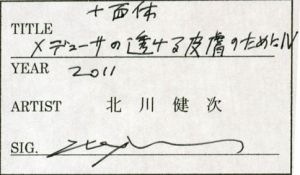 十面体
TITLE メデューサの透ける皮膚のためにIV
YEAR 2011
ARTIST 北川健次
SIG.